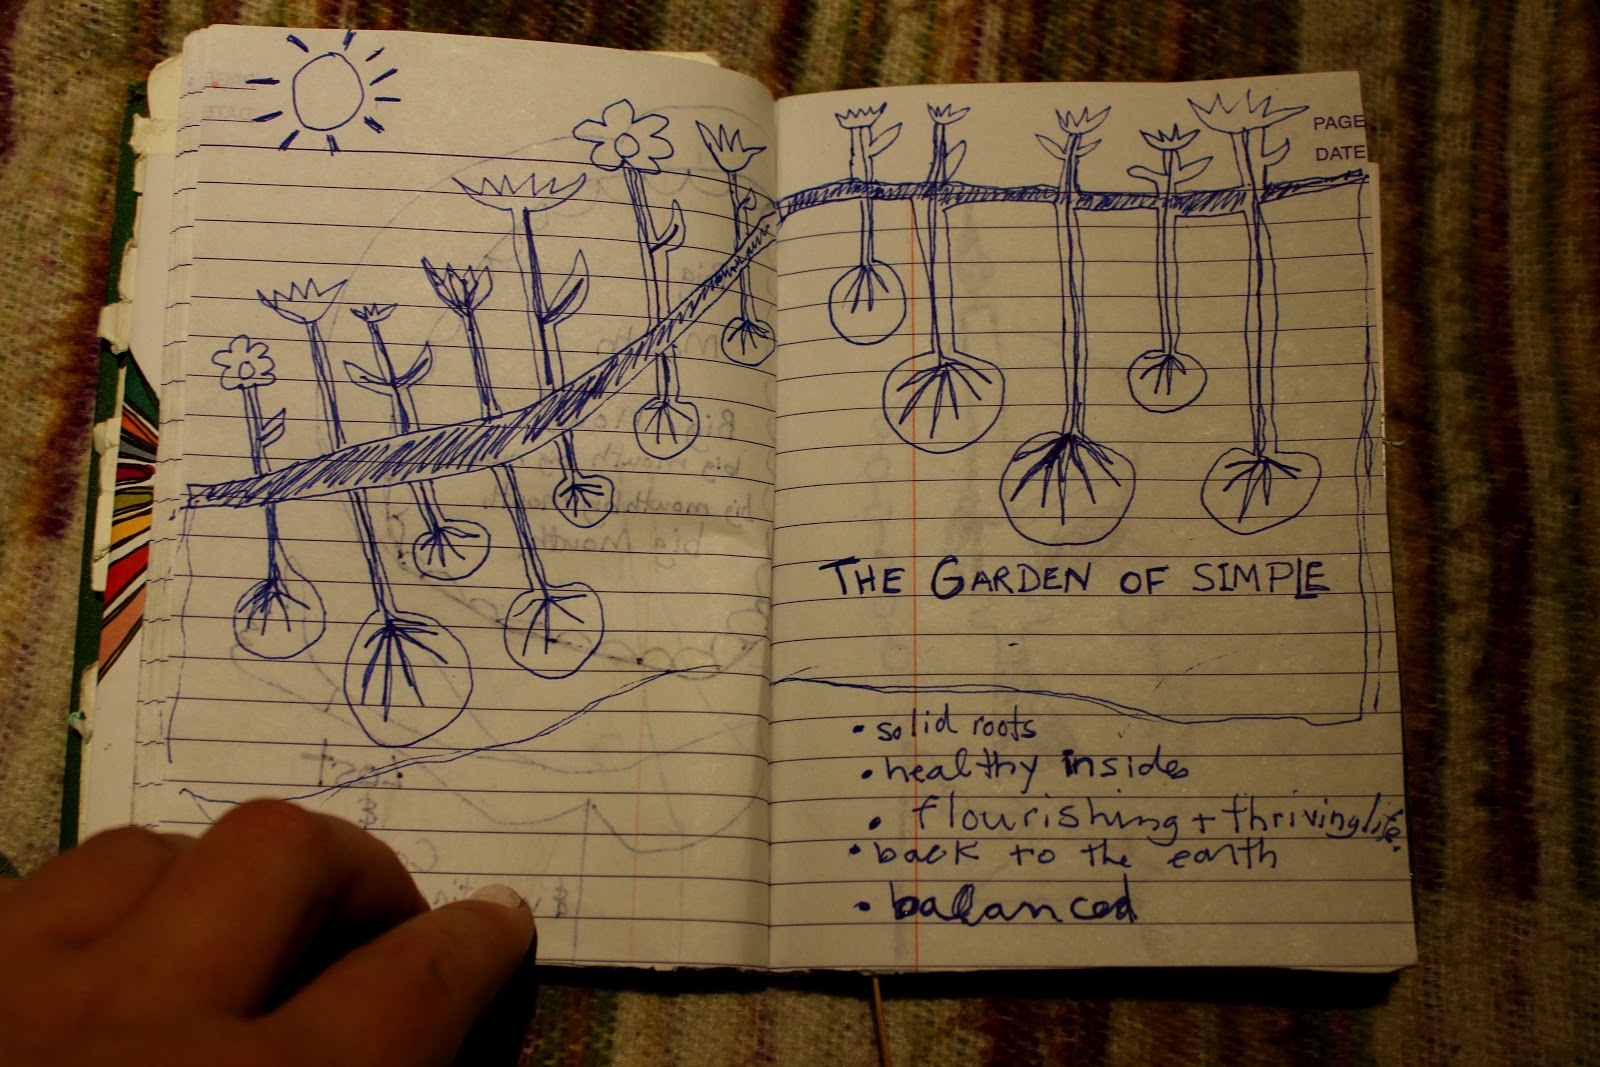 PAGE
DATE
THE GARDEN OF SIMPLE
• solid roots
• healthy insides
• flourishing + thriving life.
• back to the earth
• balanced